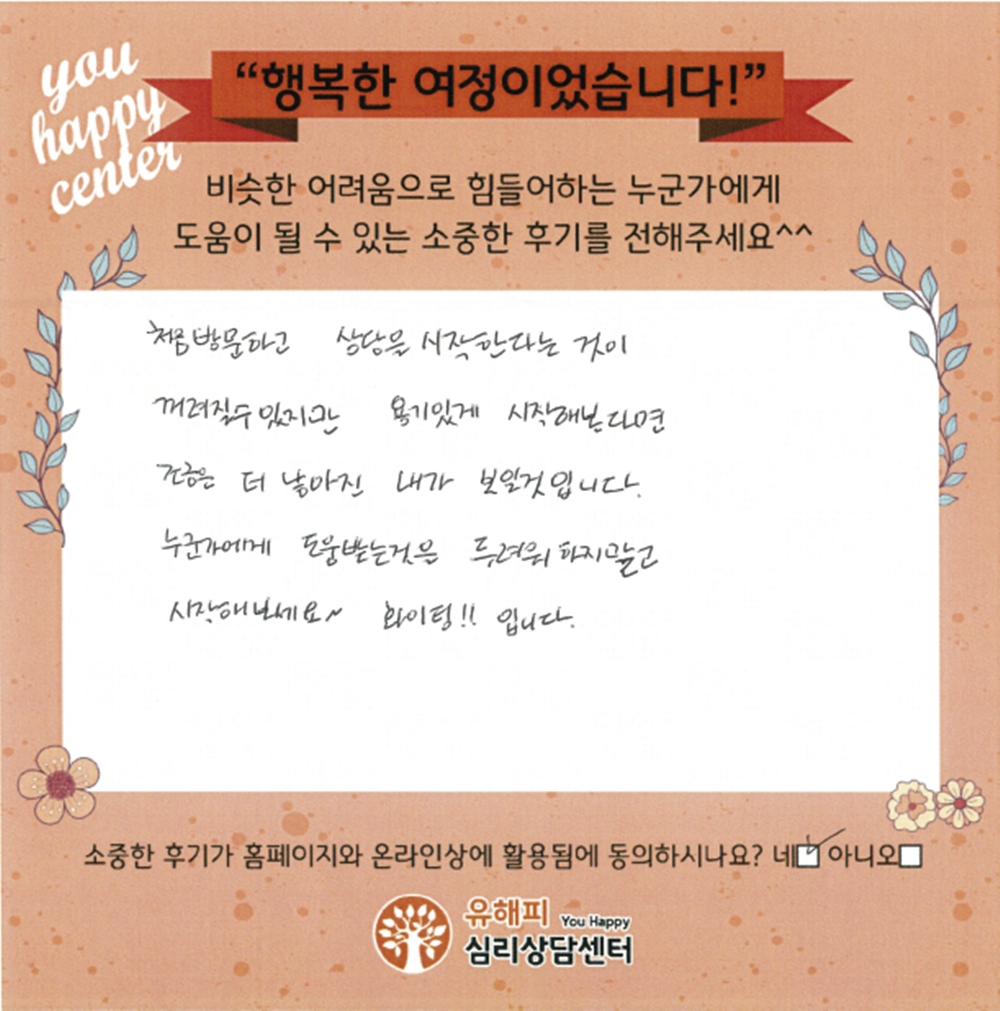 you
happy
center
“행복한 여정이었습니다!”
비슷한 어려움으로 힘들어하는 누군가에게
도움이 될 수 있는 소중한 후기를 전해주세요^^
처음방문하고 상담을 시작한다는 것이
꺼려질수있지만 용기있게 시작해본다면
조금은 더 낳아진 내가 보일것입니다.
누군가에게 도움받는것을 두려워하지말고
시작해보세요~ 화이팅!! 입니다.
소중한 후기가 홈페이지와 온라인상에 활용됨에 동의하시나요? 네 아니오
유해피 You Happy
심리상담센터